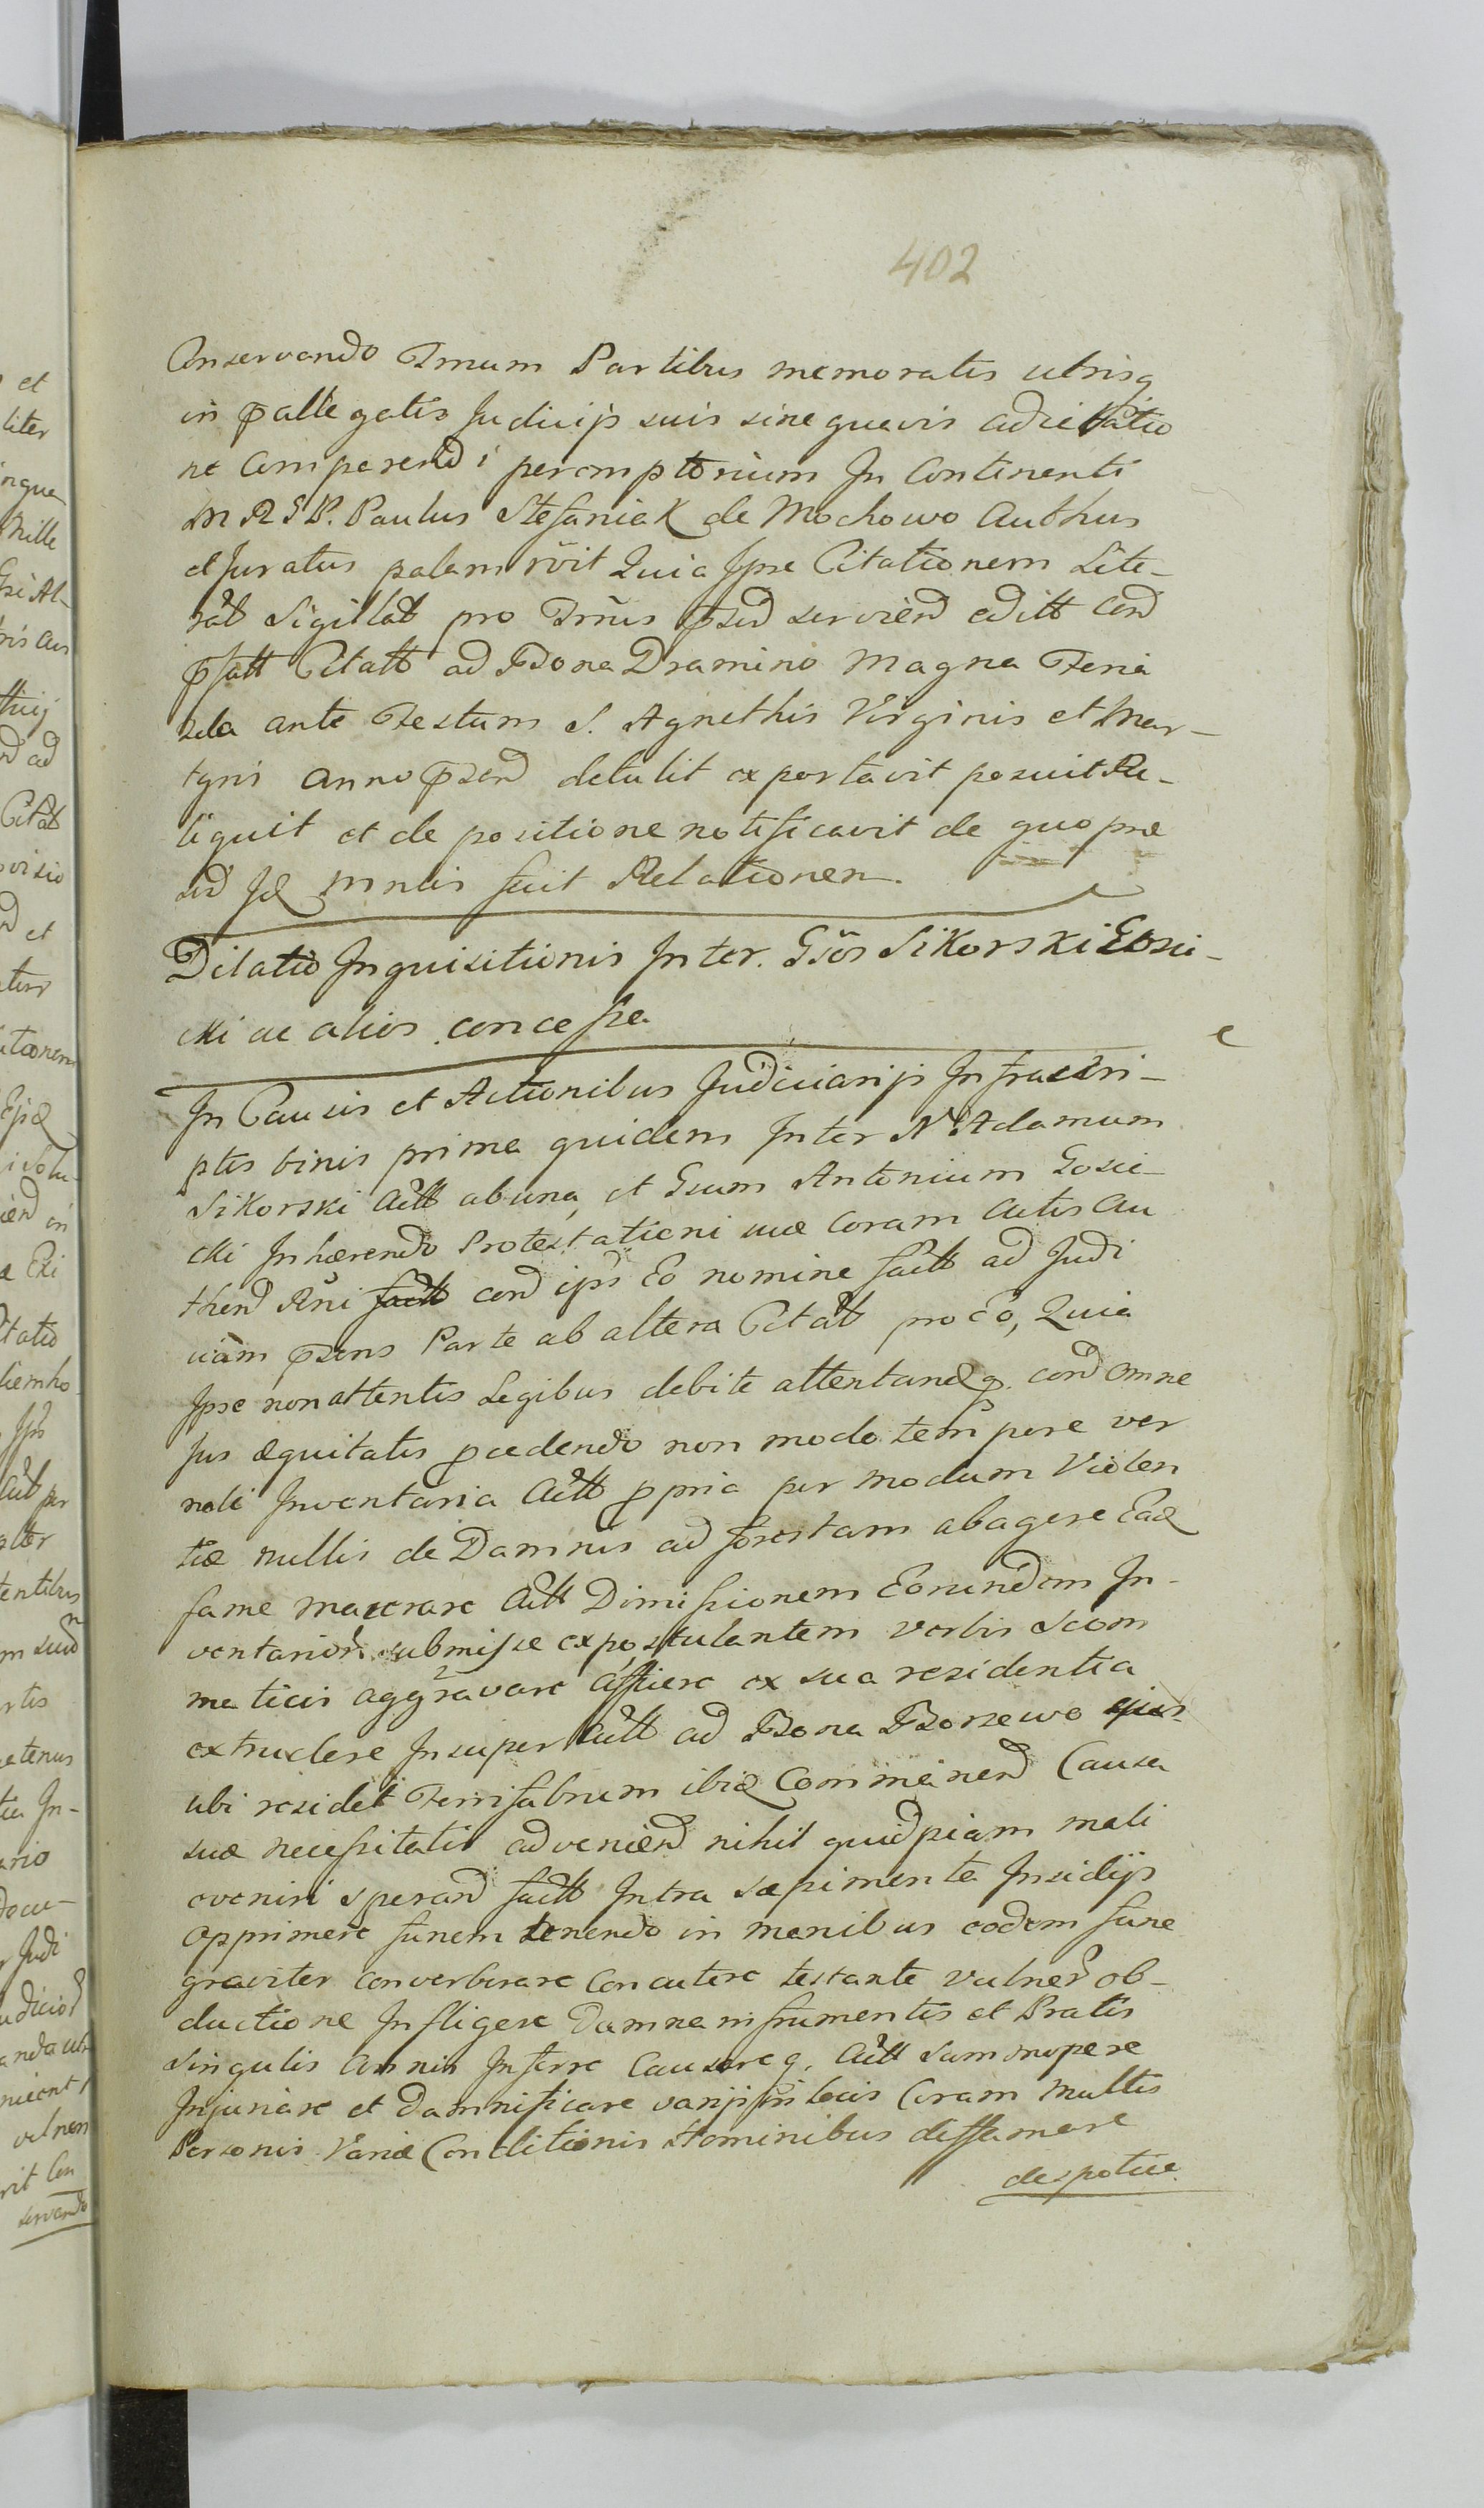 402
Conservando Tmum Partibus memoratis utrisq
in pallegatis Judicijs suis sine quavis adcitatio
ne Comparendi peremptorium In Continenti
M R S P. Paulus Stefaniak de Mochowo Authus
et Juratus palam rũit Quia Ipse Citationem Lite-
rat Sigillat pro Tmis psud serviend editt cond
psatt Citatt ad Bona Dramino Magna Feria
2da ante Festum S. Agnethis Virginis et Mar-
tyris anno psend detulit exportavit posuit Re-
liquit et de positione notificavit de quo præ
sid Jd Mntis fuit Relationem.
Dilatio Inquisitionis Inter. Gsos Sikorski Gosci-
cki ac alios concessa
In Causis et Actionibus Judiciarijs Infrascri-
ptis binis prima quidem Inter N Adamum
Sikorski Actt ab una, et Gsum Antonium Gosci-
cki Inhærendo Protestationi suæ Coram Actis Au
thend Rni cond ips Eo nomine factt ad Judi
ciam psens Parte ab altera Citatt pro eo, Quia
Ipse non attentis Legibus debite attentandq. cond omne
Jus æquitatis pcedendo non modo tempore ver
nali Inventaria Actt ppria per modum Violen
tiæ nullis de Damnis ad forestam abagere Ead
fame macerare Actt Dimissionem Eorundem In-
ventarior submisse expostulantem verbis Scom
maticis aggravare afficere ex sua residentia
extrudere Insuper Actt ad Bona Borzewo
ubi residet Ferrifabrum ibid Commanend Causa
suæ necessitatis adveniend nihil quidpiam mali
eveniri sperand factt Intra sæpimenta Insidijs
opprimere funem tenendo in manibus eodem fune
graviter converberare Concutere testante vulner ob-
ductione Infligere Damna in frumentis et Pratis
Singulis Annis Inferre Causareq. Actt Summopere
Injuriare et Damnificare varijs in locis Coram Multis
Personis Variæ Conditionis Hominibus diffamare
despotice